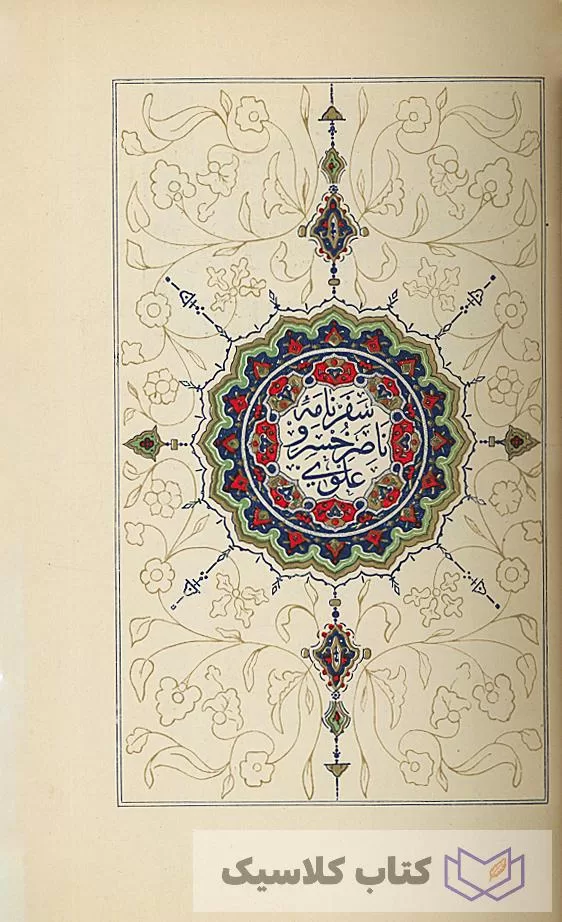 سفرنامهٔ
ناصرخسرو
علوي
کتاب کلاسیک